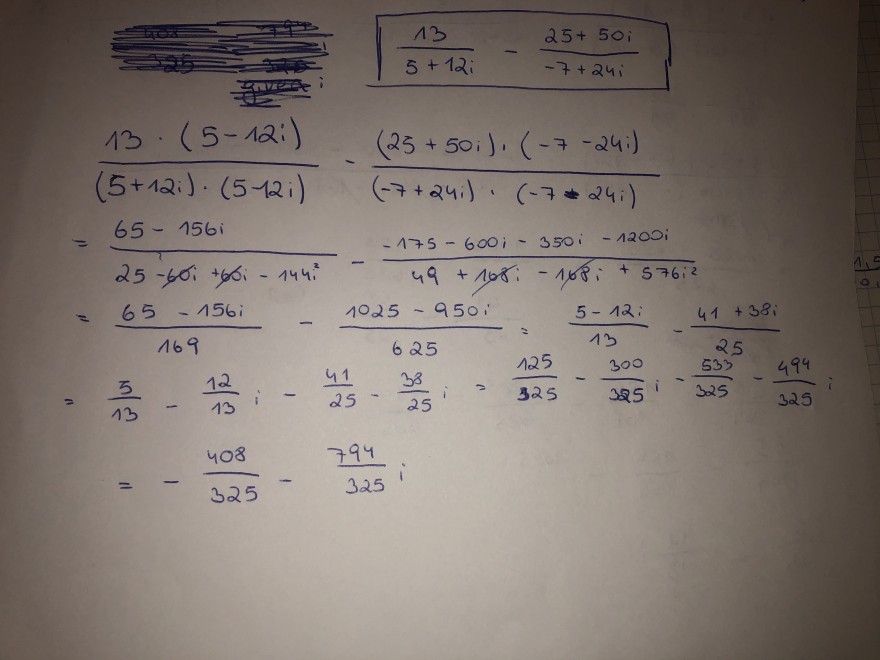 13/(5+12i) - (25+50i)/(-7+24i)
13 · (5-12i)/((5+12i) · (5-12i)) - (25+50i) · (-7-24i)/((-7+24i) · (-7-24i))
= (65-156i)/(25-60i+60i-144i²) - (-175-600i-350i-1200i)/(49+168i-168i+576i²)
= (65-156i)/169 - (1025-950i)/625 = (5-12i)/13 - (41+38i)/25
= 5/13 - 12/13 i - 41/25 - 38/25 i = 125/325 - 300/325 i - 533/325 - 494/325 i
= - 408/325 - 794/325 i